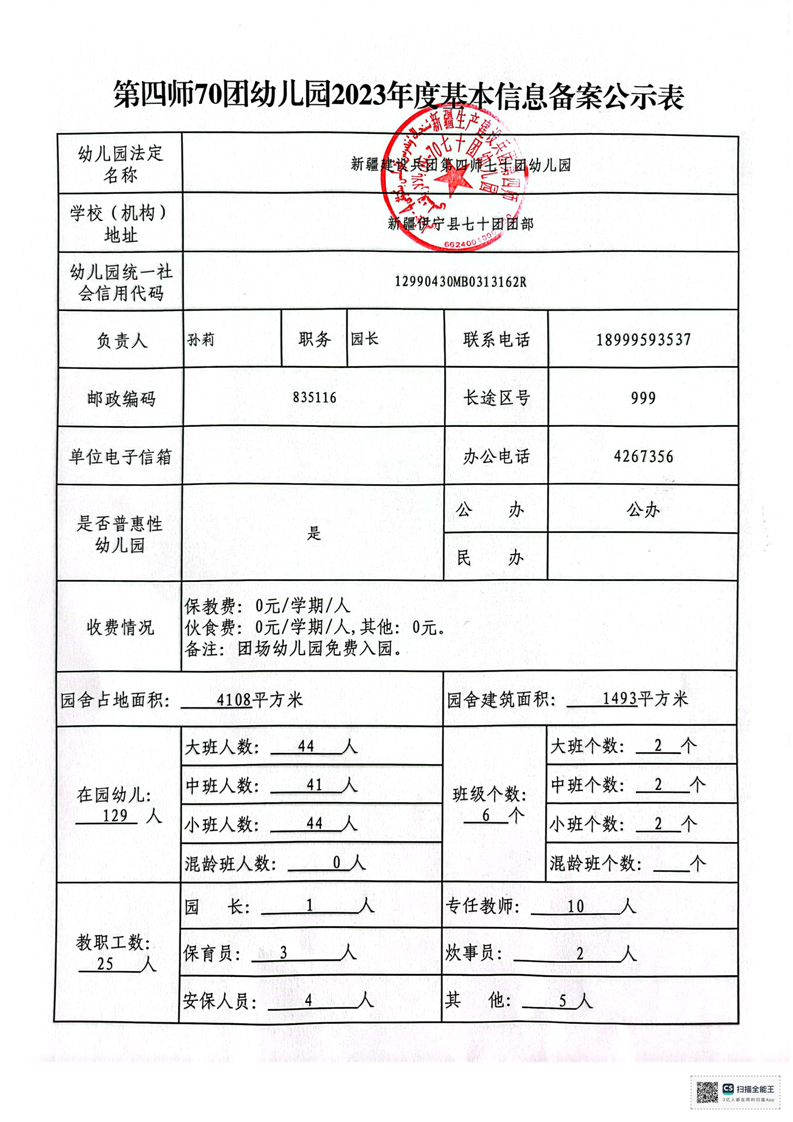 第四师70团幼儿园2023年度基本信息备案公示表
幼儿园法定
名称
新疆建设兵团第四师七十团幼儿园
学校（机构）
地址
新疆伊宁县七十团团部
幼儿园统一社
会信用代码
12990430MB0313162R
负责人 孙莉 职务 园长 联系电话 18999593537
邮政编码 835116 长途区号 999
单位电子信箱 办公电话 4267356
是否普惠性
幼儿园
是
公 办 公办
民 办
收费情况
保教费：0元/学期/人
伙食费：0元/学期/人,其他：0元。
备注：团场幼儿园免费入园。
园舍占地面积： 4108平方米 园舍建筑面积： 1493平方米
在园幼儿：
129 人
大班人数： 44 人
中班人数： 41 人
小班人数： 44 人
混龄班人数： 0 人
班级个数：
6 个
大班个数： 2 个
中班个数： 2 个
小班个数： 2 个
混龄班个数： 个
教职工数：
25 人
园 长： 1 人 专任教师： 10 人
保育员： 3 人 炊事员： 2 人
安保人员： 4 人 其 他： 5 人
CS 扫描全能王
3亿人都在用的扫描App